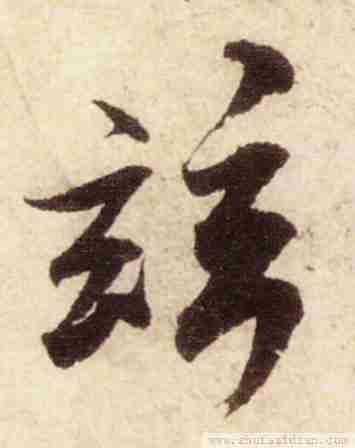 玆
www.shufazidian.com